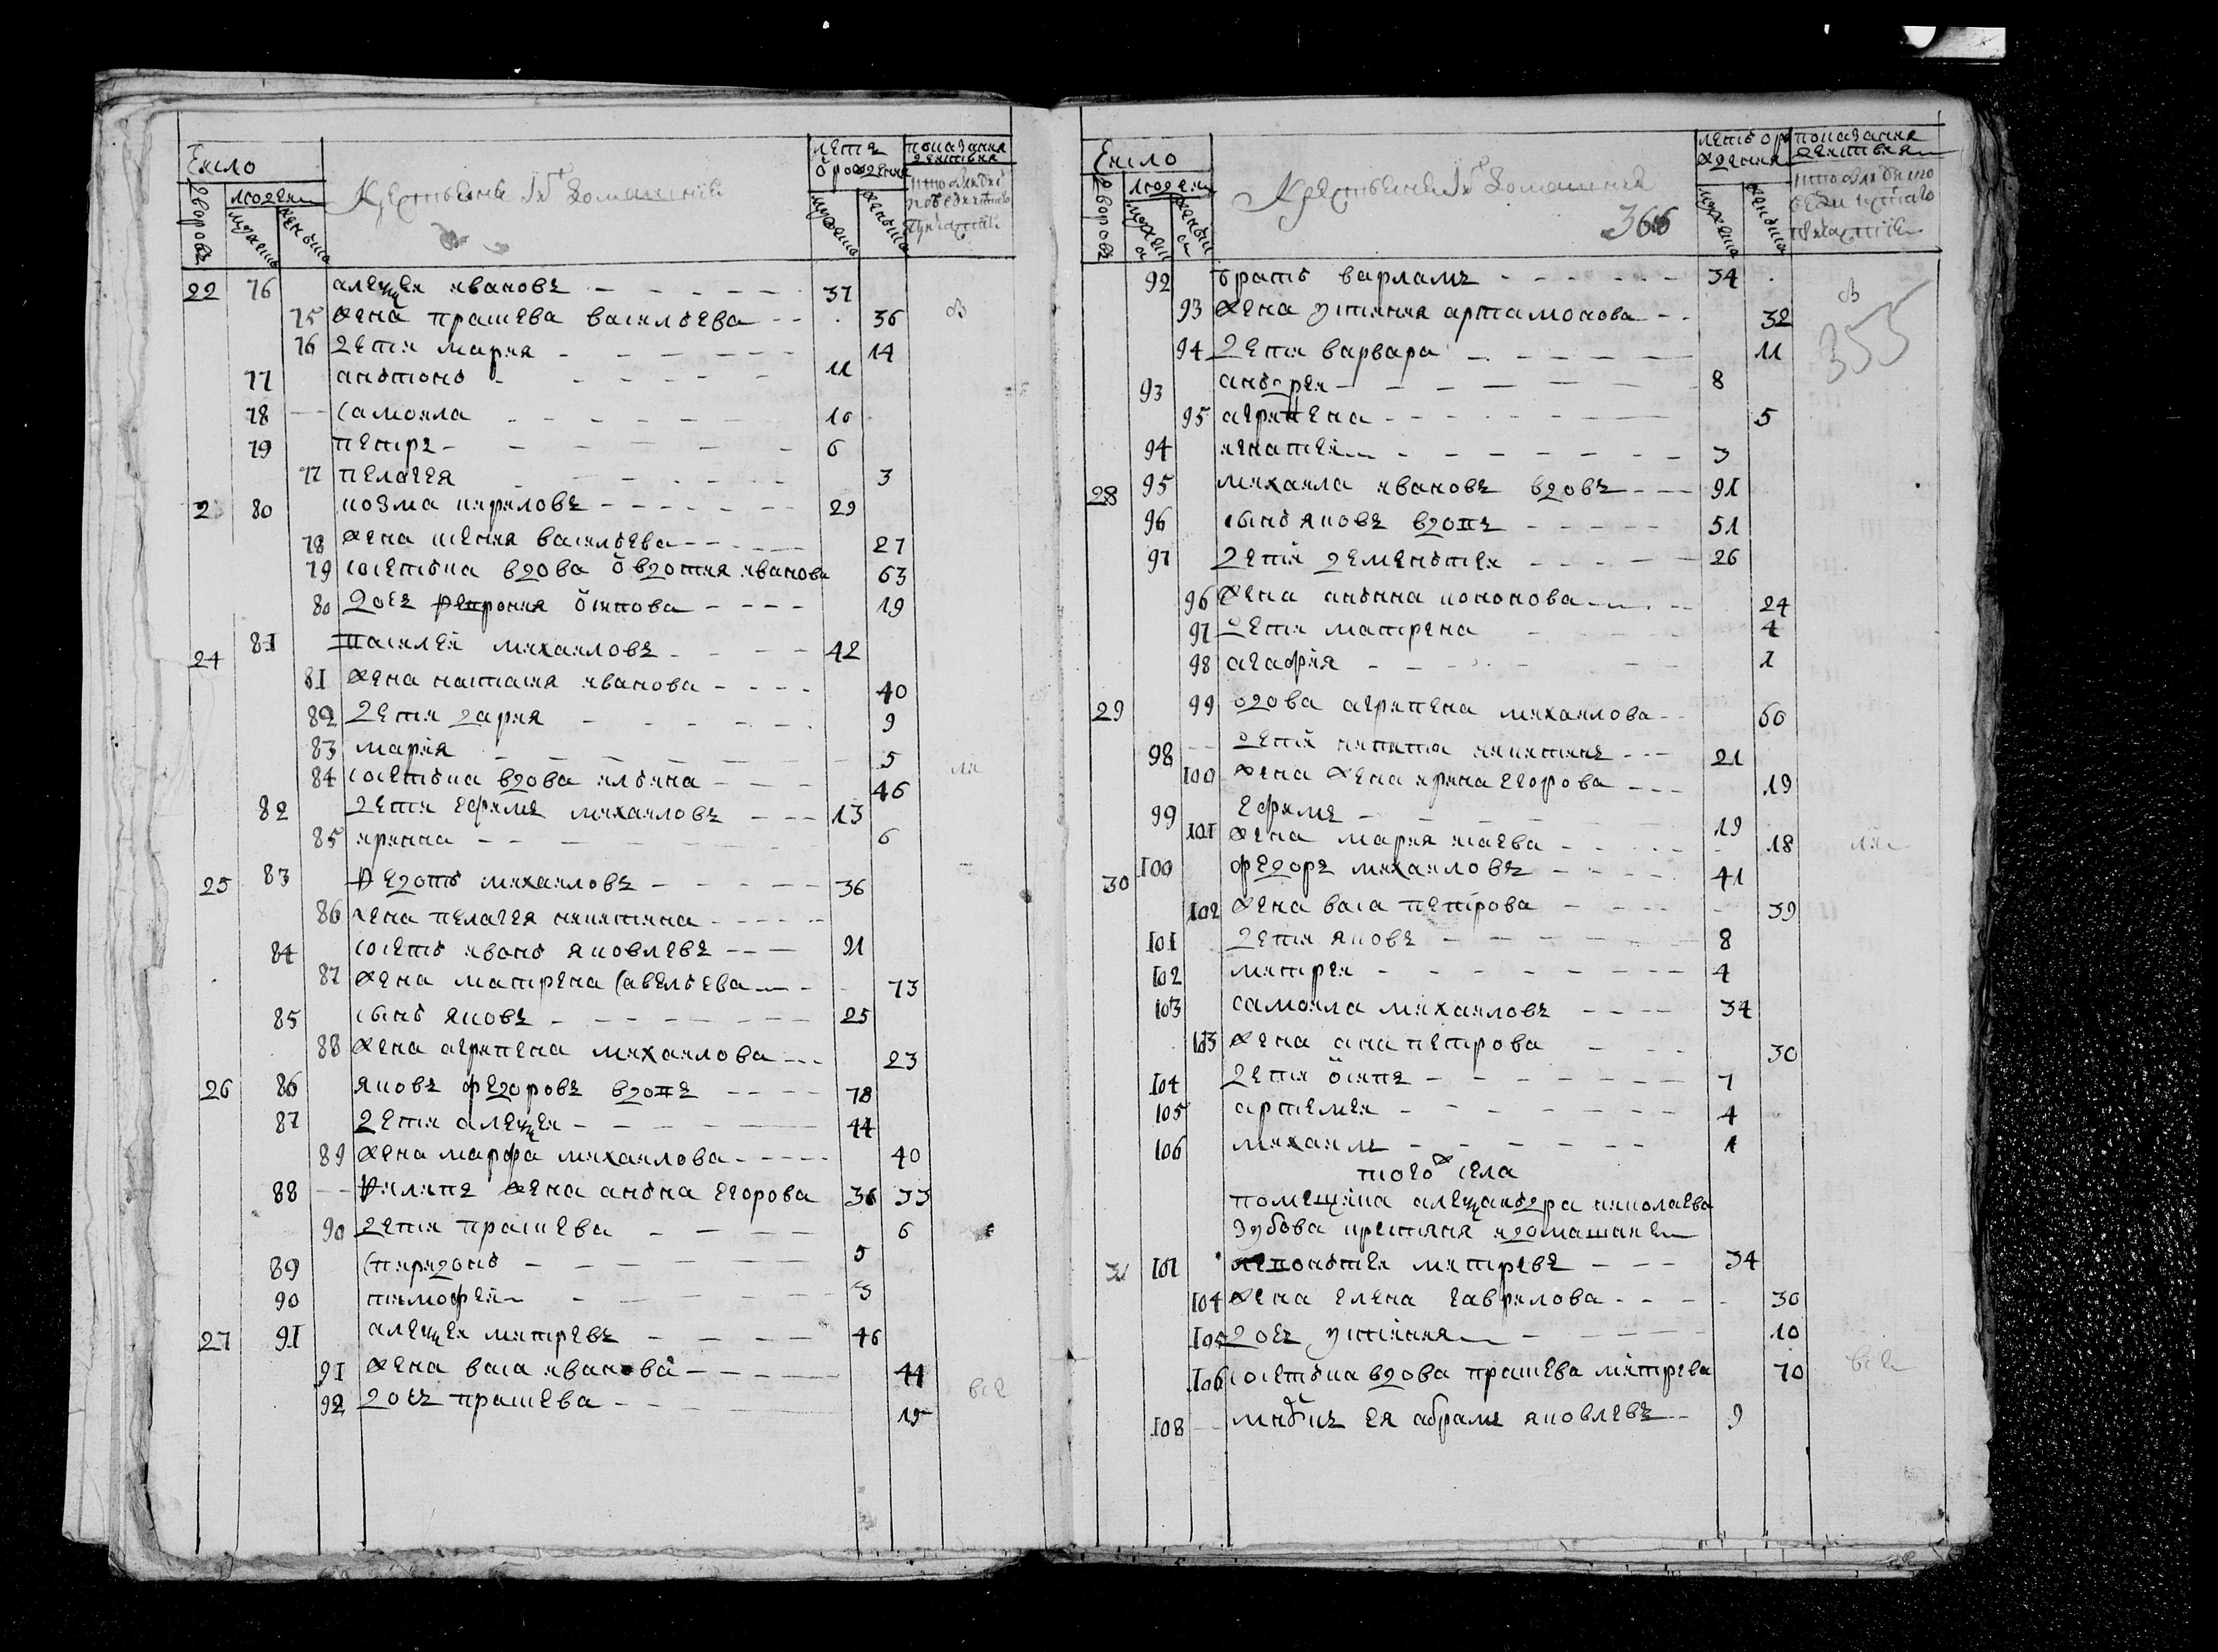 Число
дворовъ
людеи
мужеска
женска
Крестьяне и ихъ домашнïе
лета ѿ рождения
мужеска
женска
показания действия
22 76 алеѯеи ивановъ 37
75 жена прасковя васильева 36
76 дети мария 14
77 антонъ 11
78 самоила 10
79 петръ 6
77 пелагея 3
23 80 козма кириловъ 29
78 жена ксения васильева 27
79 соседка вдова ѿвдотия иванова 63
80 дочь осипова 19
24 81 василеи михаиловъ 42
81 жена наталия иванова 40
82 дети дария 9
83 мария 5
84 соседка вдова ульяна 46
82 дети ефимъ михаиловъ 13
85 ирина 6
25 83 федотъ михаиловъ 36
86 жена пелагея никитина
84 соседъ иванъ яковлевъ 91
87 жена матрена савельева 73
85 сынъ яковъ 25
88 жена агрипена михаилова 23
26 86 яковъ федоровъ вдовъ 78
87 дети алеѯеи 44
89 жена марфа михаилова 40
88 филипъ жена анна егорова 36 33
90 дети прасковя 6
89 спиридонъ 5
90 тимофеи 3
27 91 алеѯеи митревъ 46
91 жена васа иванова 44
92 дочь прасковя 19
все
Число
дворовъ
людеи
мужеска
женска
Крестьяне и ихъ домашния
366
летъ ѿ рождения
мужеска
женска
показания действия
355
92 братъ варламъ 34
93 жена устиния артамонова 32
94 дети варвара 11
93 андреи 8
95 агрипена 5
94 игнатеи 3
28 95 михаила ивановъ вдовъ 91
96 сынъ яковъ вдовъ 51
97 дети дементеи 26
96 жена анна кононова 24
97 дети матрена 4
98 агафия 1
29 99 вдова агрипена михаилова 60
98 дети никита никитинъ 21
100 жена жена ирина егорова 19
99 ефимъ 19
101 жена мария исаева 18
30 100 федоръ михаиловъ 41
102 жена васа петрова 39
101 дети яковъ 8
102 митреи 4
103 самоила михаиловъ 34
103 жена ана петрова 30
104 дети ѿсипъ 7
105 артемеи 4
106 михаилъ 1
тогожъ села
помещика алеѯандра николаева
зубова крестяня и домашние
31 107 леонтеи митревъ 34
104 жена елена гаврилова 30
105 дочь устиния 10
106 соседка вдова прасковя митрева 70
108 внукъ ея абрамъ яковлевъ 9
все